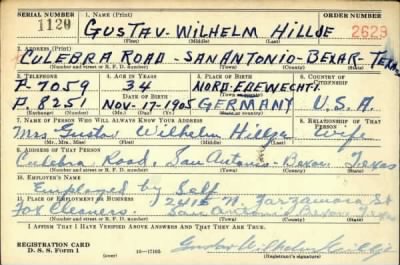 SERIAL NUMBER 1. NAME (Print) ORDER NUMBER
1120 GUSTAV - WILHELM HILLJE 2623
(First) (Middle) (Last)
2. ADDRESS (Print)
CULEBRA ROAD - SAN ANTONIO - BEXAR - TEXAS
(Number and street or R. F. D. number) (Town) (County) (State)
3. TELEPHONE 4. AGE IN YEARS 5. PLACE OF BIRTH 6. COUNTRY OF CITIZENSHIP
P-7059 34 NORD-EDEWECHT-1.
DATE OF BIRTH (Town or county)
P. 8251 NOV-17-1905 GERMANY U.S.A.
(Exchange) (Number) (Mo.) (Day) (Yr.) (State or country)
7. NAME OF PERSON WHO WILL ALWAYS KNOW YOUR ADDRESS 8. RELATIONSHIP OF THAT PERSON
Mrs. Gustav Wilhelm Hillje Wife
(Mr., Mrs., Miss) (First) (Middle) (Last)
9. ADDRESS OF THAT PERSON
Culebra Road, San Antonio - Bexar - Texas
(Number and street or R. F. D. number) (Town) (County) (State)
10. EMPLOYER'S NAME
Employed by Self
11. PLACE OF EMPLOYMENT OR BUSINESS 2415 N. Zarzamora St
Fox Cleaners San Antonio Bexar Texas
(Number and street or R. F. D. number) (Town) (County) (State)
I AFFIRM THAT I HAVE VERIFIED ABOVE ANSWERS AND THAT THEY ARE TRUE.
REGISTRATION CARD
D. S. S. Form 1 16-17105 Gustav Wilhelm Hillje
(Registrant's signature)